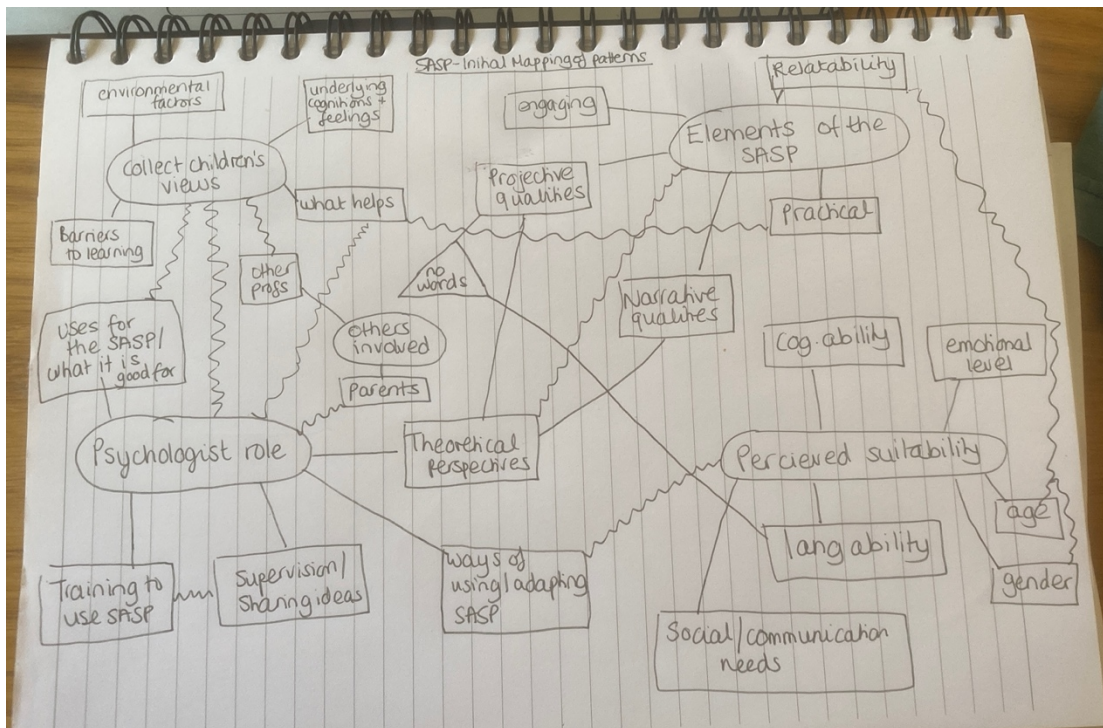 SASP-Initial Mapping of patterns
environmental
factors
underlying
cognitions +
feelings
engaging
Relatability
Elements of the
SASP
Collect children's
views
Projective
qualities
what helps
Practical
Barriers
to learning
other
profs
no
words
Narrative
qualities
uses for
the SASP/
what it is
good for
others
involved
Parents
Cog. ability
emotional
level
Psychologist role
Theoretical
perspectives
Percieved suitability
age
lang ability
gender
Training to
use SASP
Supervision/
Sharing ideas
ways of
using/adapting
SASP
Social/communication
needs